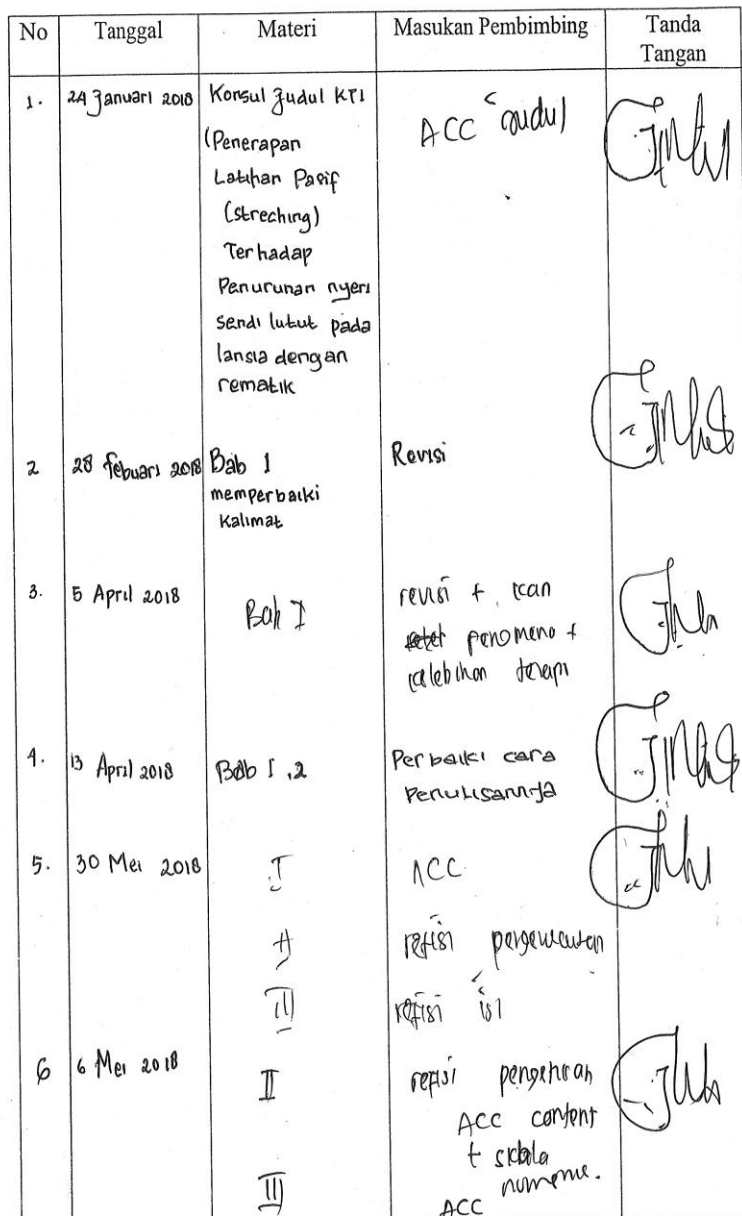 No Tanggal Materi Masukan Pembimbing Tanda Tangan
1. 24 Januari 2018 Konsul Judul KTI ACC judul
(Penerapan
Latihan Pasif
(streching)
Terhadap
Penurunan nyeri
sendi lutut pada
lansia dengan
rematik
2 28 Febuari 2018 Bab I Revisi
memperbaiki
Kalimat
3. 5 April 2018 Bab I revisi +
penomeno +
terapi
4. 13 April 2018 Bab I,2 Perbaiki cara
Penulisannya
5. 30 Mei 2018 I ACC
II refisi
III refisi isi
6 6 Mei 2018 II refisi
ACC content
+ skala
III ACC